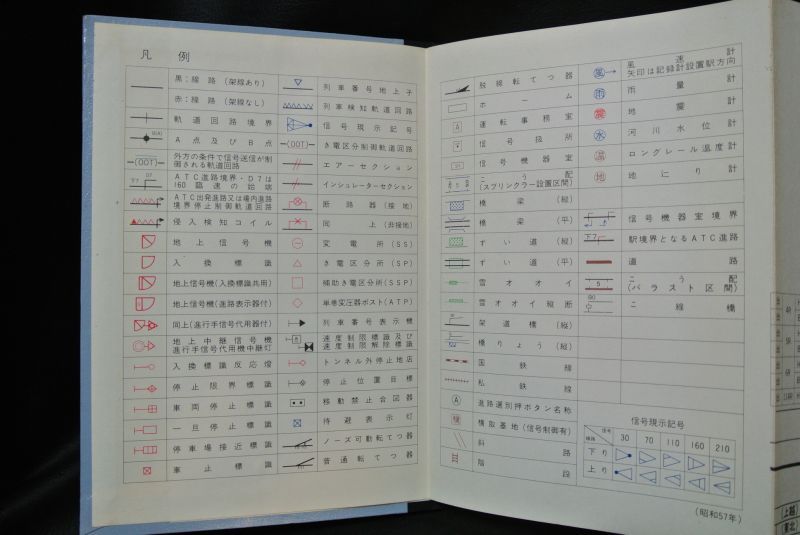 凡例
黒：線路（架線あり）
赤：線路（架線なし）
軌道回路境界
A点及びB点
外方の条件で信号送信が制
御される軌道回路
ATC進路境界・D7は
160臨速の始端
ATC出発進路又は場内進路
境界停止制御軌道回路
侵入検知コイル
地上信号機
入換標識
地上信号機（入換標識共用）
地上信号機（進路表示器付）
同上（進行手信号代用器付）
地上中継信号機
進行手信号代用機中継灯
入換標識反応燈
停止限界標識
車両停止標識
一旦停止標識
停車場接近標識
車止標識
列車番号地上子
列車検知軌道回路
信号現示記号
き電区分制御軌道回路
エアーセクション
インシュレーターセクション
断路器（接地）
同上（非接地）
変電所（SS）
き電区分所（SP）
補助き電区分所（SSP）
単巻変圧器ポスト（ATP）
列車番号表示機
速度制限標識及び
速度制限解除標識
トンネル外停止地店
停止位置目標
移動禁止合図器
待避表示灯
ノーズ可動転てつ器
普通転てつ器
脱線転てつ器
ホーム
運転事務室
信号扱所
信号機器室
こう配
（スプリンクラー設置区間）
橋梁（縦）
橋梁（平）
ずい道（縦）
ずい道（平）
雪オオイ
雪オオイ縦断
架道橋（縦）
橋りょう（縦）
国鉄線
私鉄線
進路選別押ボタン名称
横取基地（信号制御有）
斜路
階段
風速計
矢印は記録計設置駅方向
雨量計
地震計
河川水位計
ロングレール温度計
地にり計
信号機器室境界
駅境界となるATC進路
道路
こう配
（バラスト区間）
こ線橋
信号現示記号
信号
線路
30 70 110 160 210
下り
上り
（昭和57年）